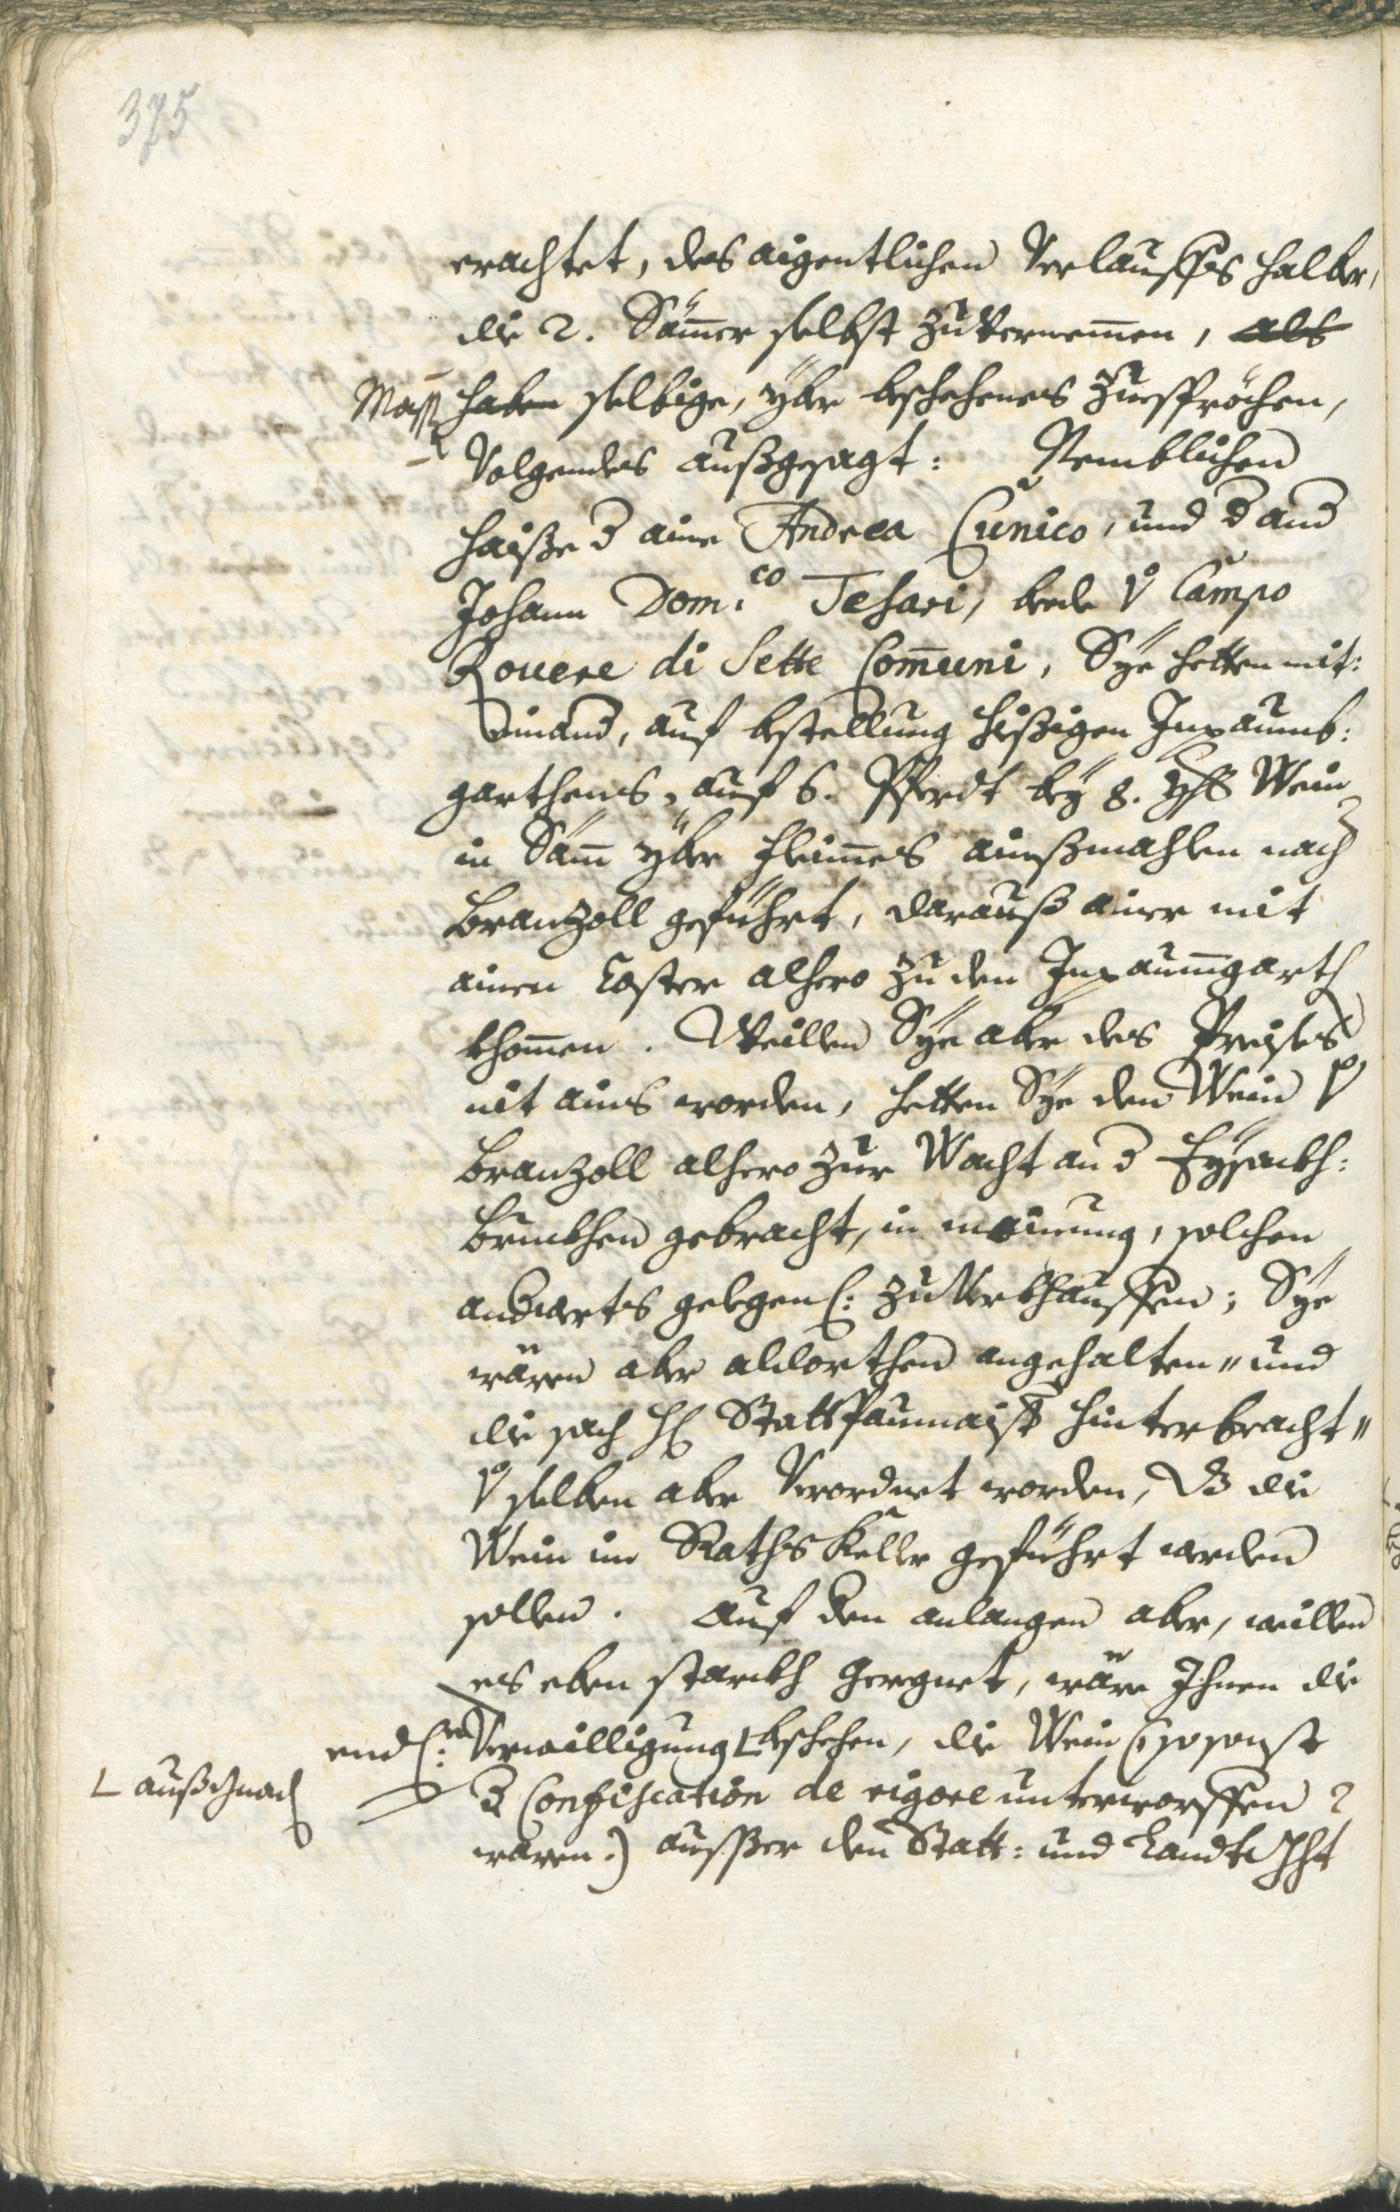 375
erachtet, des aigentlichen Verlauffs halber,
die 2. Sämer selbst zuvernemen, als
Mass haben selbige, yber beschehenes Zuesprechen,
Volgendes außgesagt: Nemblichen
haiße d aine Andrea Cunico, und d and
Johann Dom:co Tesari, bede Vo Campo
Rouere di Sette Comuni, Sye hetten mit:
einand, auf bestellung hießigen Inpaumb:
garthens, auf 6. Pferdt bey 8. Yhß Wein
in Säm yber Fleimes ainßmahlen nach
Branzoll geführt, darauß ainer mit
ainen Coster alhero zu den Inpaumgarth
khomen. Weillen Sye aber des Preises
nit ains worden, hetten Sye den Wein Vo
Branzoll alhero zur Wacht an d Eysackh:
Pruckhen gebracht, in mainung, solchen
andwerts zuverkhauffen; Sye
wären aber aldorthen angehalten" und
die sach H: Stattpaumaist hinterbracht"
Vo selben aber Verordnet worden, dß die
Wein im Raths Keller geführt werden
sollen. Auf den anlangen aber, weillen
es eben starckh geregnet, wäre Ihnen die
endl: Verwilligung L beschehen, die Wein (so sonst
L
d Confiscation de rigore unterworffen
waren.) ausser den Statt: und Landtght